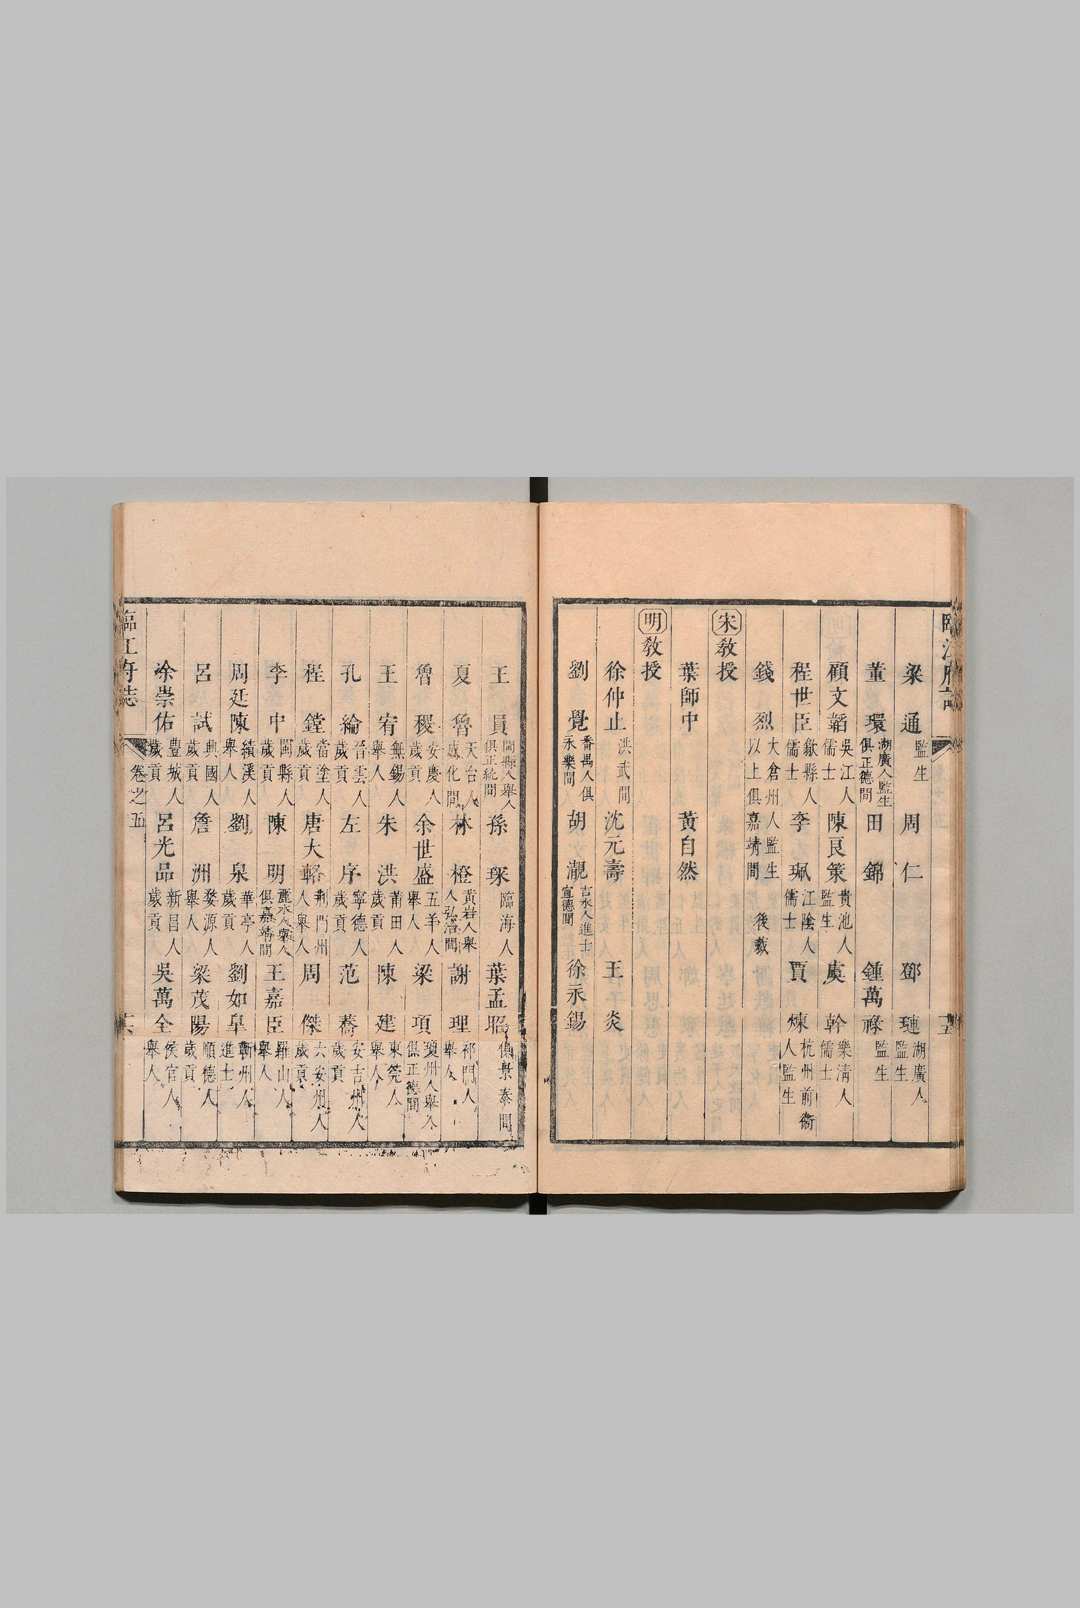 梁通監生　周仁　鄧璉湖廣人監生
董環湖廣人監生俱正德間　田錦　鍾萬祿監生
顧文韜吳江人儒士　陳良策貴池人監生　虞幹樂清人儒士
程世臣歙縣人儒士　李珮江陰人儒士　賈煉杭州前衛人監生
錢烈太倉州人監生以上俱嘉靖間　後裁
宋教授
葉師中　黃自然
明教授
徐仲止洪武間　沈元壽　王炎
劉覺番禺人俱永樂間　胡瀧吉水人進士宣德間　徐永錫
王員閩縣人舉人俱正統間　孫琛臨海人　葉孟昭俱景泰間
夏魯天台人成化間　林橙黃岩人舉人弘治間　謝理祁門人舉人
魯稷安慶人歲貢　余世盛五羊人舉人　梁項瓊州人舉人俱正德間
王宥無錫人舉人　朱洪莆田人歲貢　陳建東莞人舉人
孔綸晉雲人歲貢　左序寧德人歲貢　范蕎安吉州人歲貢
程鏜當塗人歲貢　唐大輅荆門州人舉人　周傑六安州人歲貢
李中閩縣人歲貢　陳明麗水人舉人俱嘉靖間　王嘉臣羅山人舉人
周延陳績溪人舉人　劉泉華亭人歲貢　劉如皐蘄州人進士
呂試興國人歲貢　詹洲婺源人舉人　梁茂陽順德人
涂崇佑豐城人歲貢　呂光品新昌人歲貢　吳萬全侯官人舉人
臨江府誌　卷之五　十六